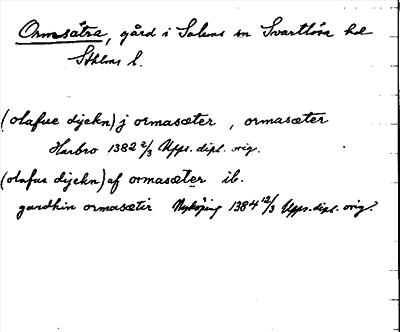 Ormsätra, gård i Salems sn Svartlösa hd
Sthlms l.
(olafue dyekn) j ormasæter , ormasæter
Harbro 1382 2/3 Upps. dipl. orig.
(olafus dyekn) af ormasæter ib.
gardhin ormasætir Nyköping 1384 12/3 Upps. dipl. orig.